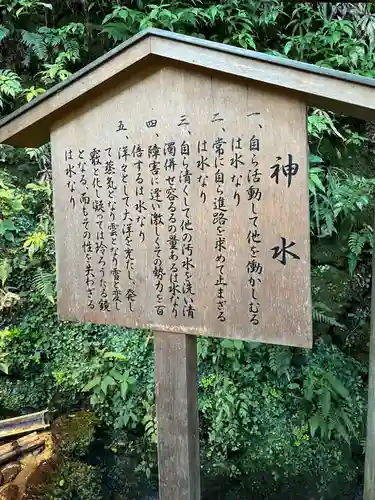 神水
一、自ら活動して他を働かしむる
は水なり
二、常に自ら進路を求めて止まざる
は水なり
三、自ら清くして他の汚水を洗い清
濁併せ容るの量あるは水なり
四、障害に逢い激しくその勢力を百
倍するは水なり
五、洋々として大洋を充たし、発し
て蒸気となり雲となり雪と変じ
霰と化し凝っては玲ろうたる鏡
となる、而もその性を失わざる
は水なり